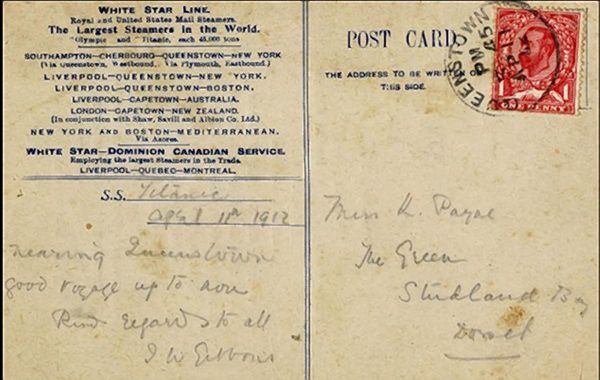 WHITE STAR LINE.
Royal and United States Mail Steamers.
The Largest Steamers in the World.
"Olympic and "Titanic, each 45,000 tons
SOUTHAMPTON-CHERBOURG-QUEENSTOWN-NEW YORK
(Via Queenstown, Westbound, Via Plymouth, Eastbound.)
LIVERPOOL-QUEENSTOWN-NEW YORK.
LIVERPOOL-QUEENSTOWN-BOSTON.
LIVERPOOL-CAPETOWN-AUSTRALIA.
LONDON-CAPETOWN-NEW ZEALAND.
(In conjunction with Shaw, Savill and Albion Co. Ltd.)
NEW YORK AND BOSTON-MEDITERRANEAN.
Via Azores.
WHITE STAR-DOMINION CANADIAN SERVICE.
Employing the largest Steamers in the Trade.
LIVERPOOL-QUEBEC-MONTREAL.
S.S. Titanic
April 11th 1912
nearing Queenstown
good voyage up to now
Kind regards to all
J W Gibbons
POST CARD
THE ADDRESS TO BE WRITTEN ON
THIS SIDE.
QUEENSTOWN
45 PM
12
1 ONE PENNY 1
Miss K. Payne
The Green
Studland Bay
Dorset